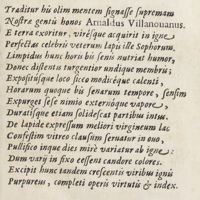 Traditur his olim mentem signasse supremam
Nostræ gentis honos Arnaldus Villanouanus.
E terra exoritur, virésque acquirit in igne
Perfectus celebris veterum lapis ille Sophorum.
Limpidus hunc horis bis senis nutriat humor,
Donec distenta turgentur undique membra;
Expositúsque loco sicco modicéque calenti,
Horarum quoque bis senarum tempore, sensim
Expurges sese nimio externóque vapore
Duratísque etiam solidescat partibus intus.
De lapide expressum meliori virgineum lac
Confestim vitreo clausum seruatur in ouo,
Pullifico inque dies mirè variatur ab igne:
Dum varij in fixo cessent candore colores.
Excipit hunc tandem crescentis viribus ignis
Purpureus, completi operis virtutis & index.